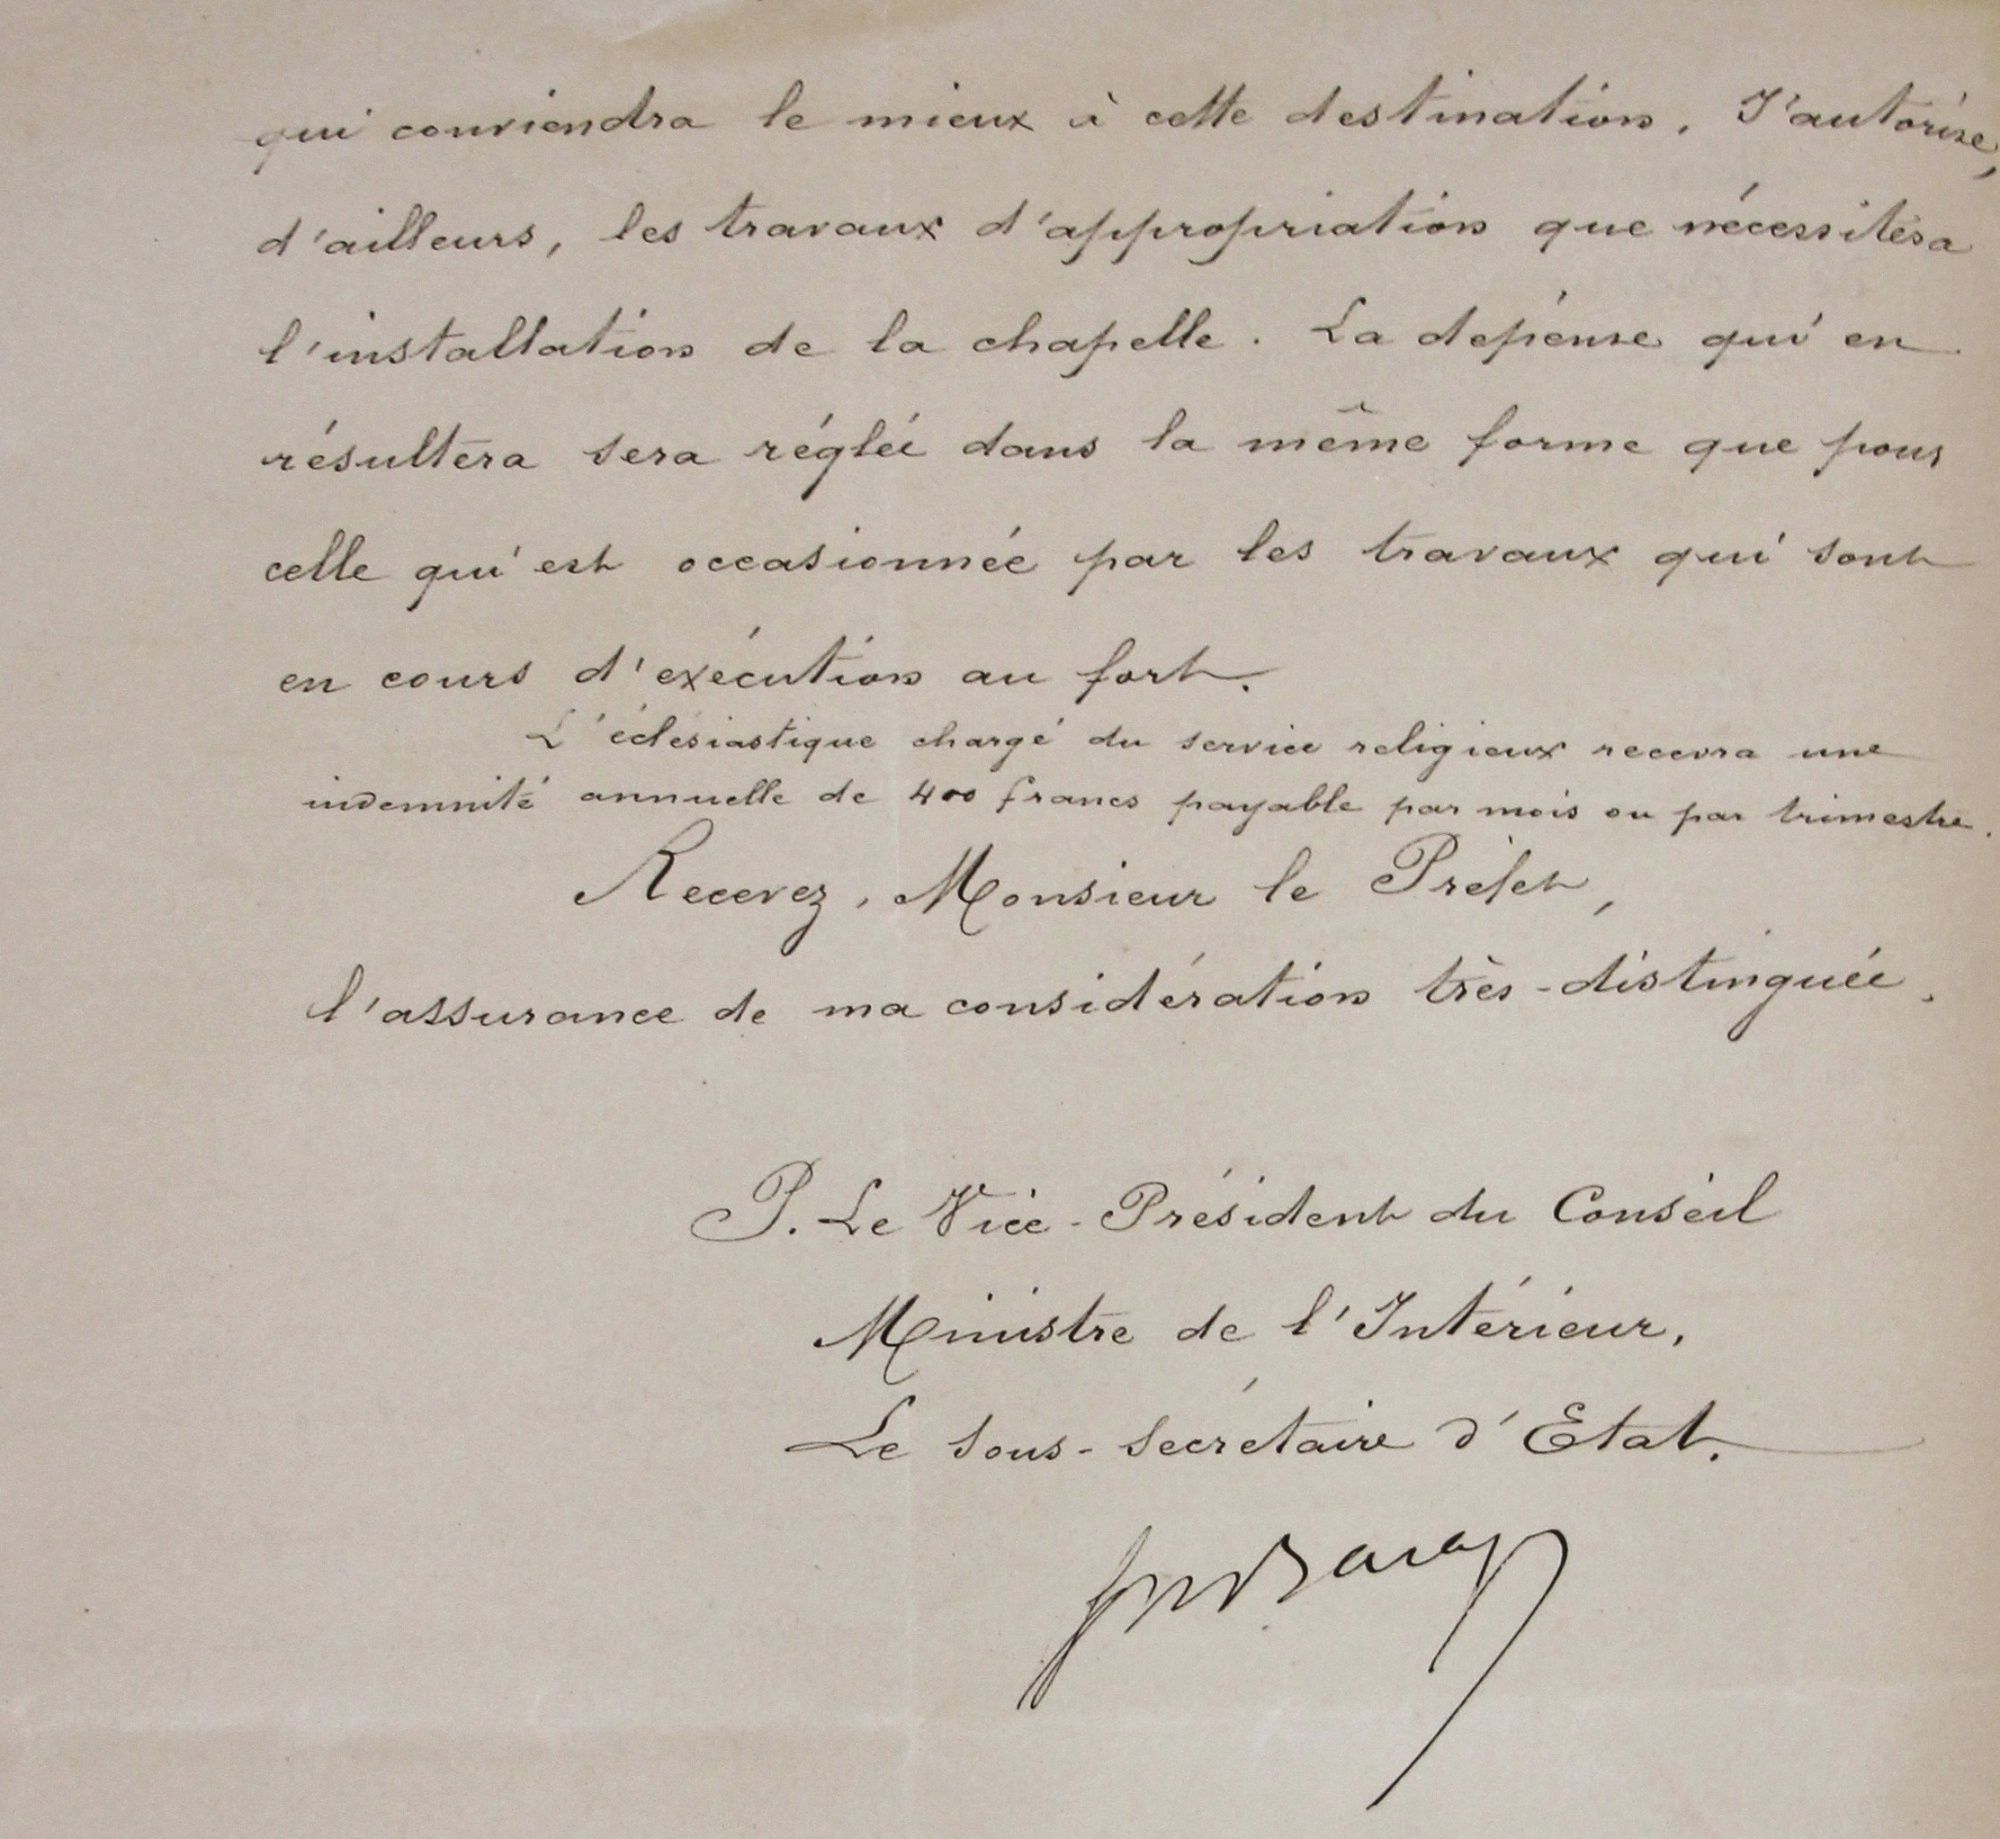 qui conviendra le mieux à cette destination. J'autorise,
d'ailleurs, les travaux d'appropriation que nécessitera
l'installation de la chapelle. La dépense qui en
résultera sera réglée dans la même forme que pour
celle qui est occasionnée par les travaux qui sont
en cours d'exécution au fort.
L'éclésiastique chargé du service religieux recevra une
indemnité annuelle de 400 francs payable par mois ou par trimestre.
Recevez, Monsieur le Préfet,
l'assurance de ma considération très-distinguée.
P. Le Vice-Président du Conseil
Ministre de l'Intérieur,
Le Sous-Secrétaire d'État.